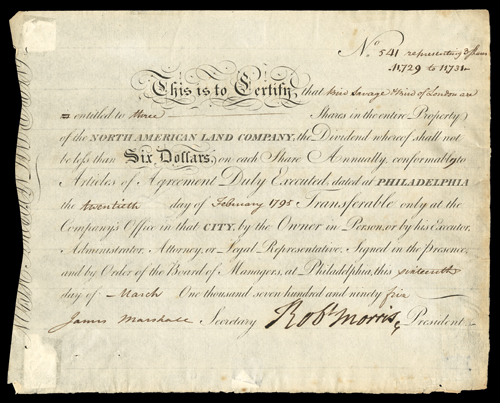 No. 541 representing 3 Shares
11729 to 11731
This is to Certify, that Bird Savage & Bird of London are
entitled to three Shares in the entire Property
of the NORTH AMERICAN LAND COMPANY, the Dividend whereof shall not
be less than Six Dollars, on each Share Annually, conformably to
Articles of Agreement Duly Executed, dated at PHILADELPHIA
the twentieth day of February 1795 Transferable only at the
Company's Office in that CITY, by the Owner in Person, or by his Executor,
Administrator, Attorney, or Legal Representative. Signed in the presence,
and by Order of the Board of Managers, at Philadelphia, this sixteenth
day of March One thousand seven hundred and ninety five
James Marshall Secretary Robt Morris, President